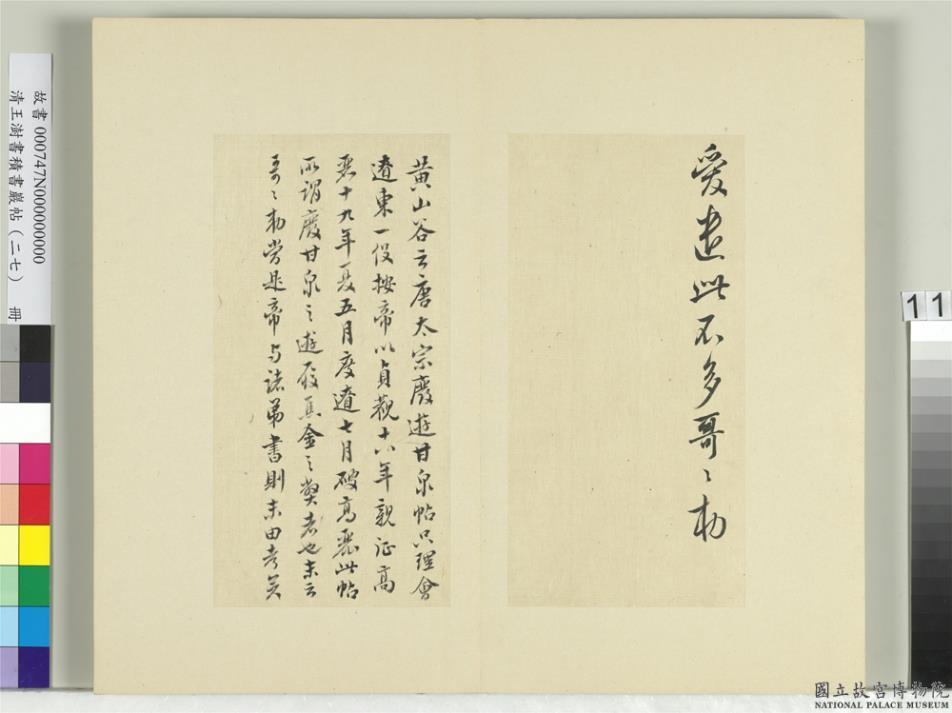 愛遣此不多哥〻勅
黃山谷云唐太宗廢遊甘泉帖只理會
遼東一役按帝以貞觀十八年親征高
麗十九年夏五月度遼七月破高麗此帖
所謂廢甘泉之遊履真金之獎者也末云
哥〻勅當是帝與諸弟書則末由考矣
故書 000747N000000000
清王澍書積書巖帖（二七） 冊
11
國立故宮博物院
NATIONAL PALACE MUSEUM